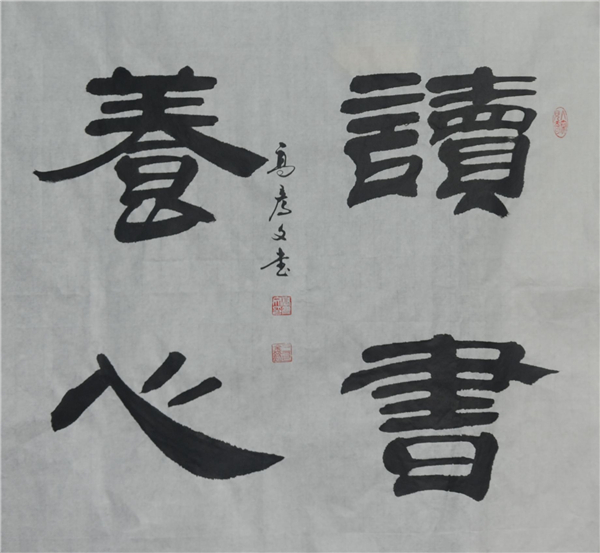 讀書
養心
高彥文书